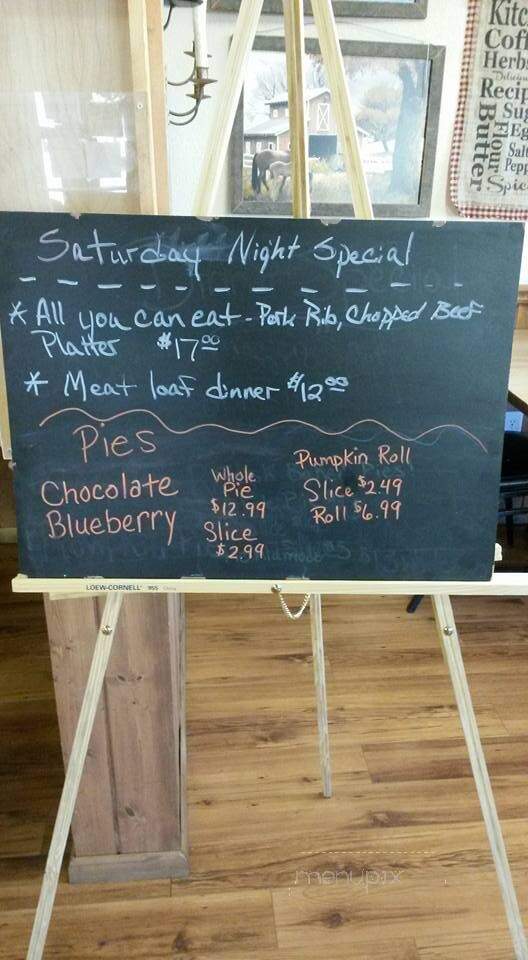 Kitc
Coff
Herbs
Delicio
Recip
Butter
Flour
Sug
Egg
Salt
Pepp
Spic
Saturday Night Special
* All you can eat - Pork Rib, Chopped Beef
Platter $17.00
* Meat loaf dinner $12.00
Pies
Chocolate
Blueberry
Whole
Pie
$12.99
Slice
$2.99
Pumpkin Roll
Slice $2.49
Roll $6.99
LOEW-CORNELL 955
menupix